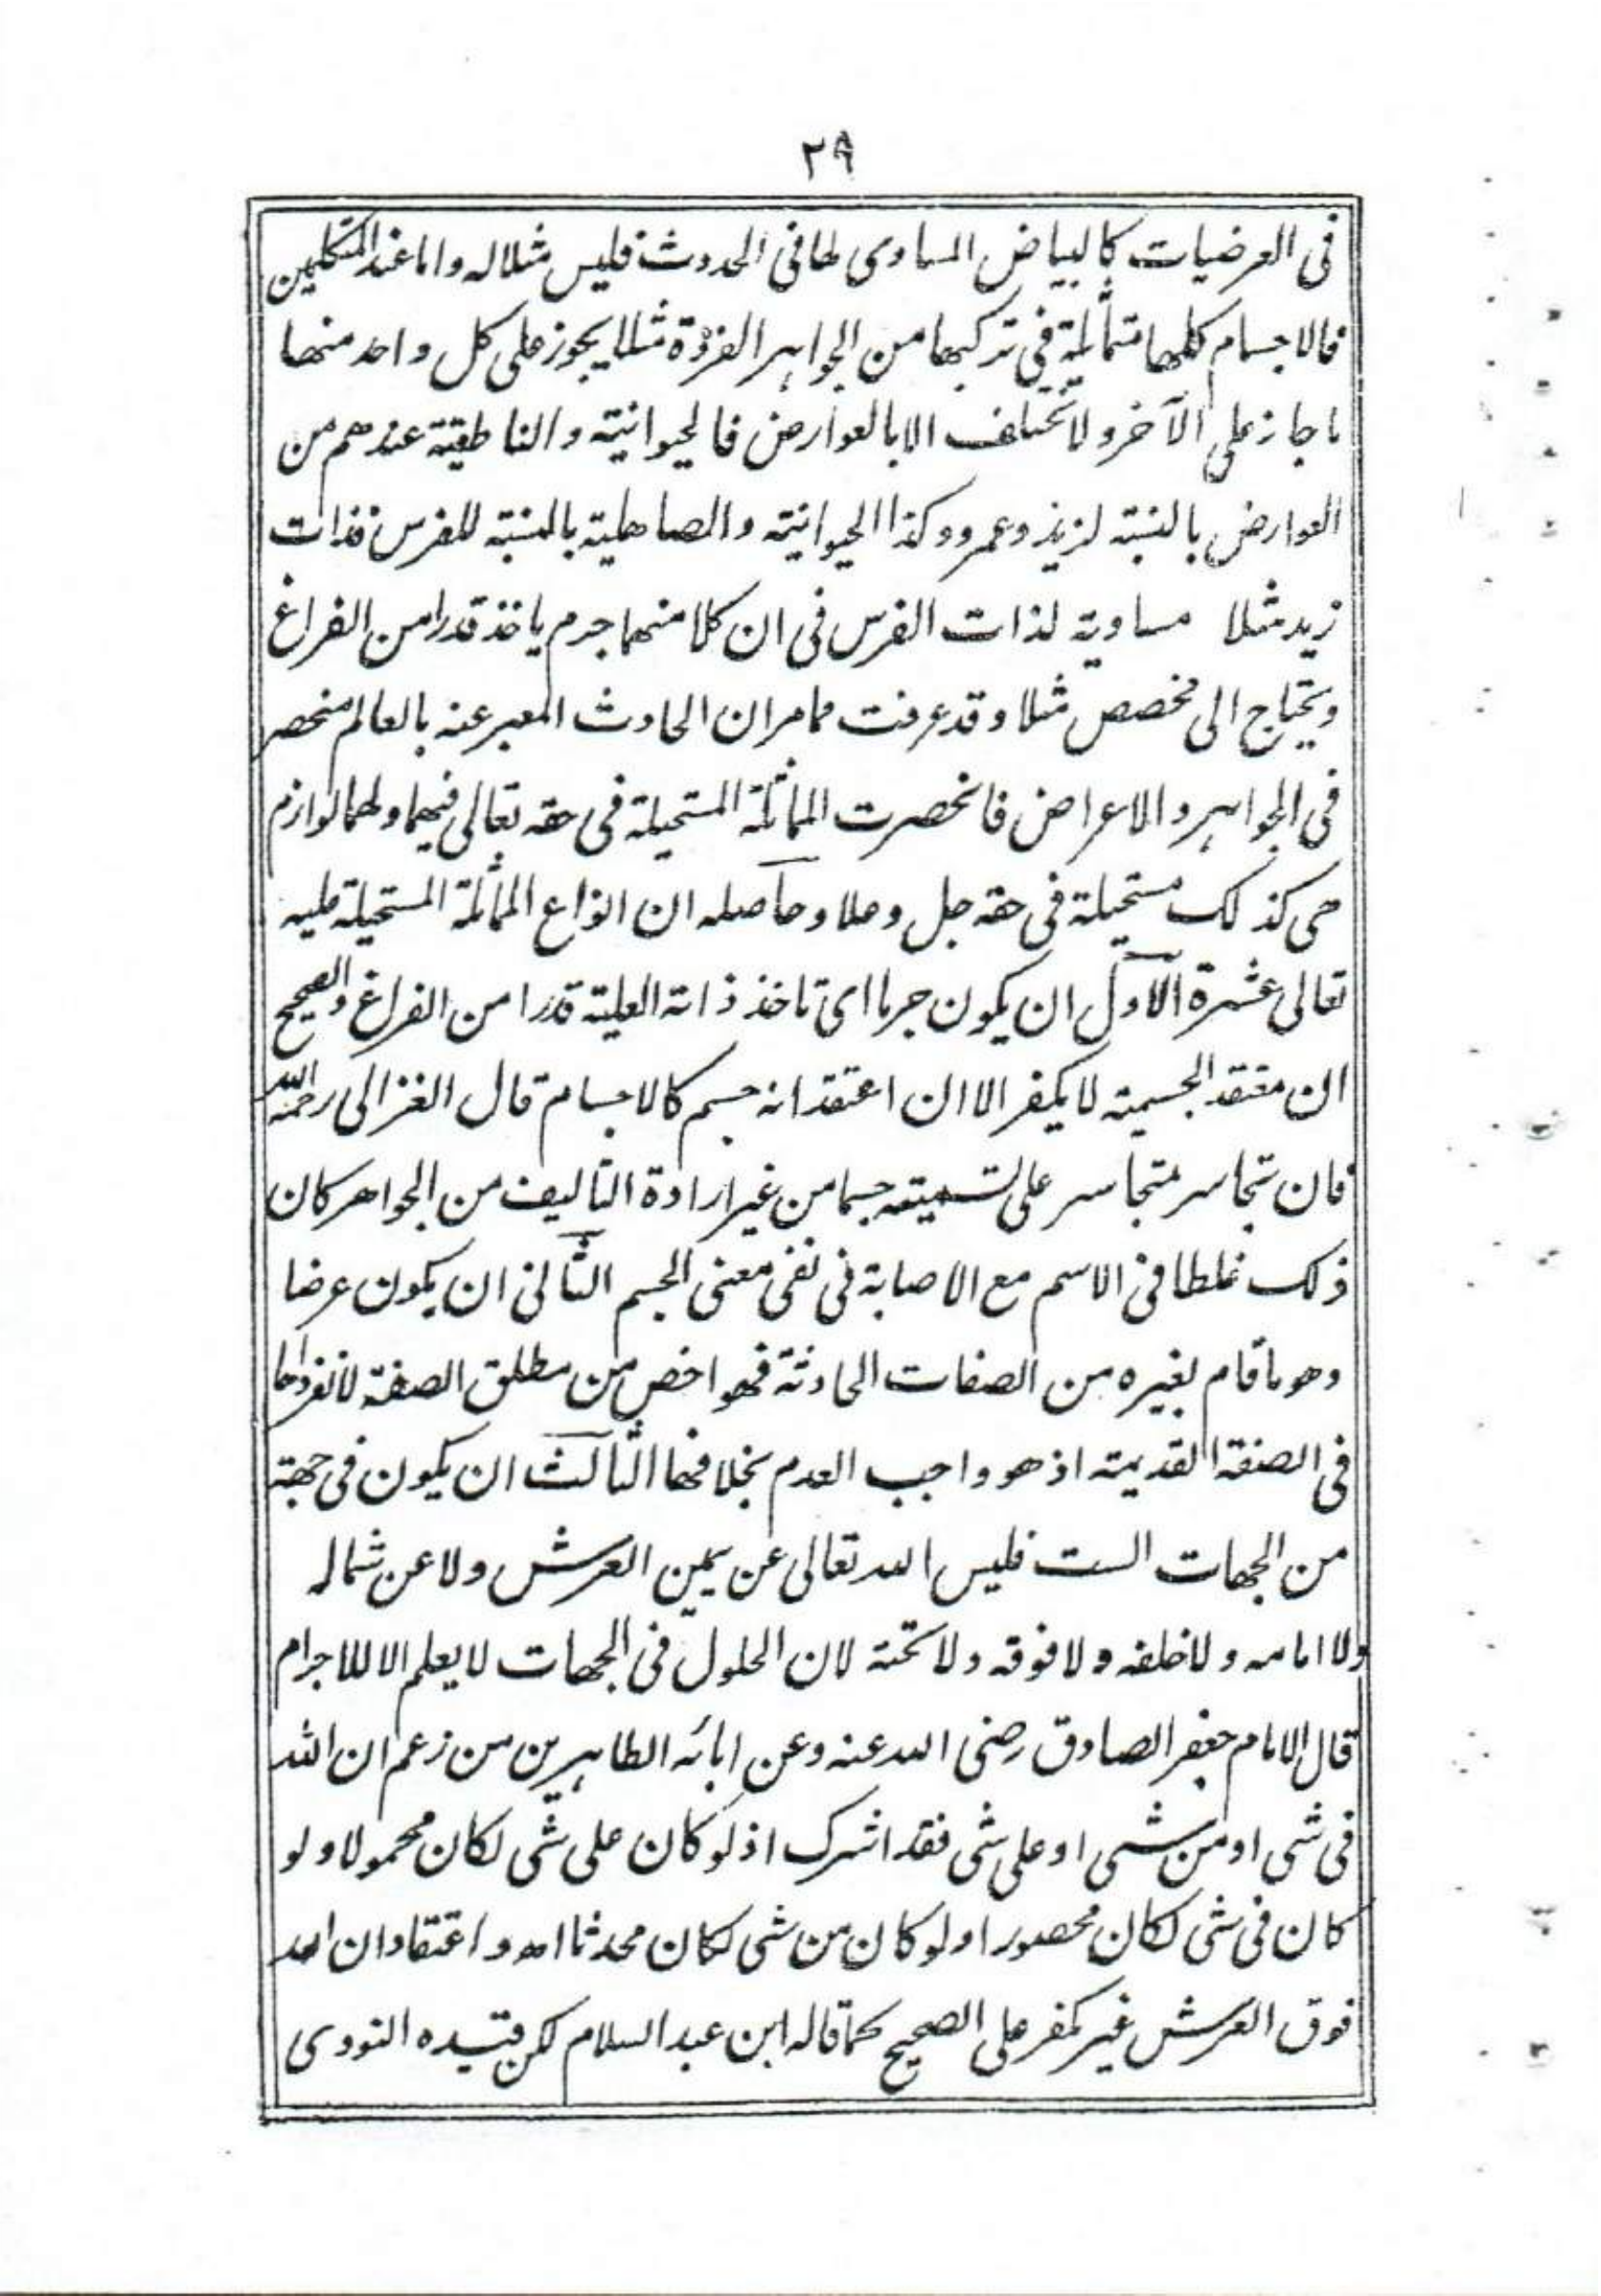 ٢٩
فى العرضيات كالبياض المساوى لها فى الحدوث فليس مثلا له واما عند المتكلمين
فالاجسام كلها متماثلة فى تركبها من الجواهر الفردة مثلا يجوز على كل واحد منها
ما جاز على الآخر ولا تختلف الا بالعوارض فالحيوانية والناطقية عندهم من
العوارض بالنسبة لزيد وعمرو وكذا الحيوانية والصاهلية بالنسبة للفرس فذات
زيد مثلا مساوية لذات الفرس فى ان كلا منهما جرم ياخذ قدرا من الفراغ
ويحتاج الى مخصص مثلا وقد عرفت مما مر ان الحادث المعبر عنه بالعالم منحصر
فى الجواهر والاعراض فانحصرت المماثلة المستحيلة فى حقه تعالى فيهما ولهما لوازم
هى كذلك مستحيلة فى حقه جل وعلا وحاصله ان انواع المماثلة المستحيلة عليه
تعالى عشرة الاول ان يكون جرما اى تاخذ ذاته العلية قدرا من الفراغ والصحيح
ان معتقد الجسمية لا يكفر الا ان اعتقد انه جسم كالاجسام قال الغزالى رحمه الله
فان تجاسر متجاسر على تسميته جسما من غير ارادة التاليف من الجواهر كان
ذلك غلطا فى الاسم مع الاصابة فى نفى معنى الجسم الثانى ان يكون عرضا
وهو ما قام بغيره من الصفات الحادثة فهو اخص من مطلق الصفة لانفرادها
فى الصفة القديمة اذ هو واجب العدم بخلافها الثالث ان يكون فى جهة
من الجهات الست فليس الله تعالى عن يمين العرش ولا عن شماله
ولا امامه ولا خلفه ولا فوقه ولا تحته لان الحلول فى الجهات لا يعلم الا للاجرام
قال الامام جعفر الصادق رضى الله عنه وعن ابائه الطاهرين من زعم ان الله
فى شى او من شى او على شى فقد اشرك اذ لو كان على شى لكان محمولا ولو
كان فى شى لكان محصورا ولو كان من شى لكان محدثا اهـ واعتقاد ان الله
فوق العرش غير مكفر على الصحيح كما قاله ابن عبد السلام لكن قيده النووى